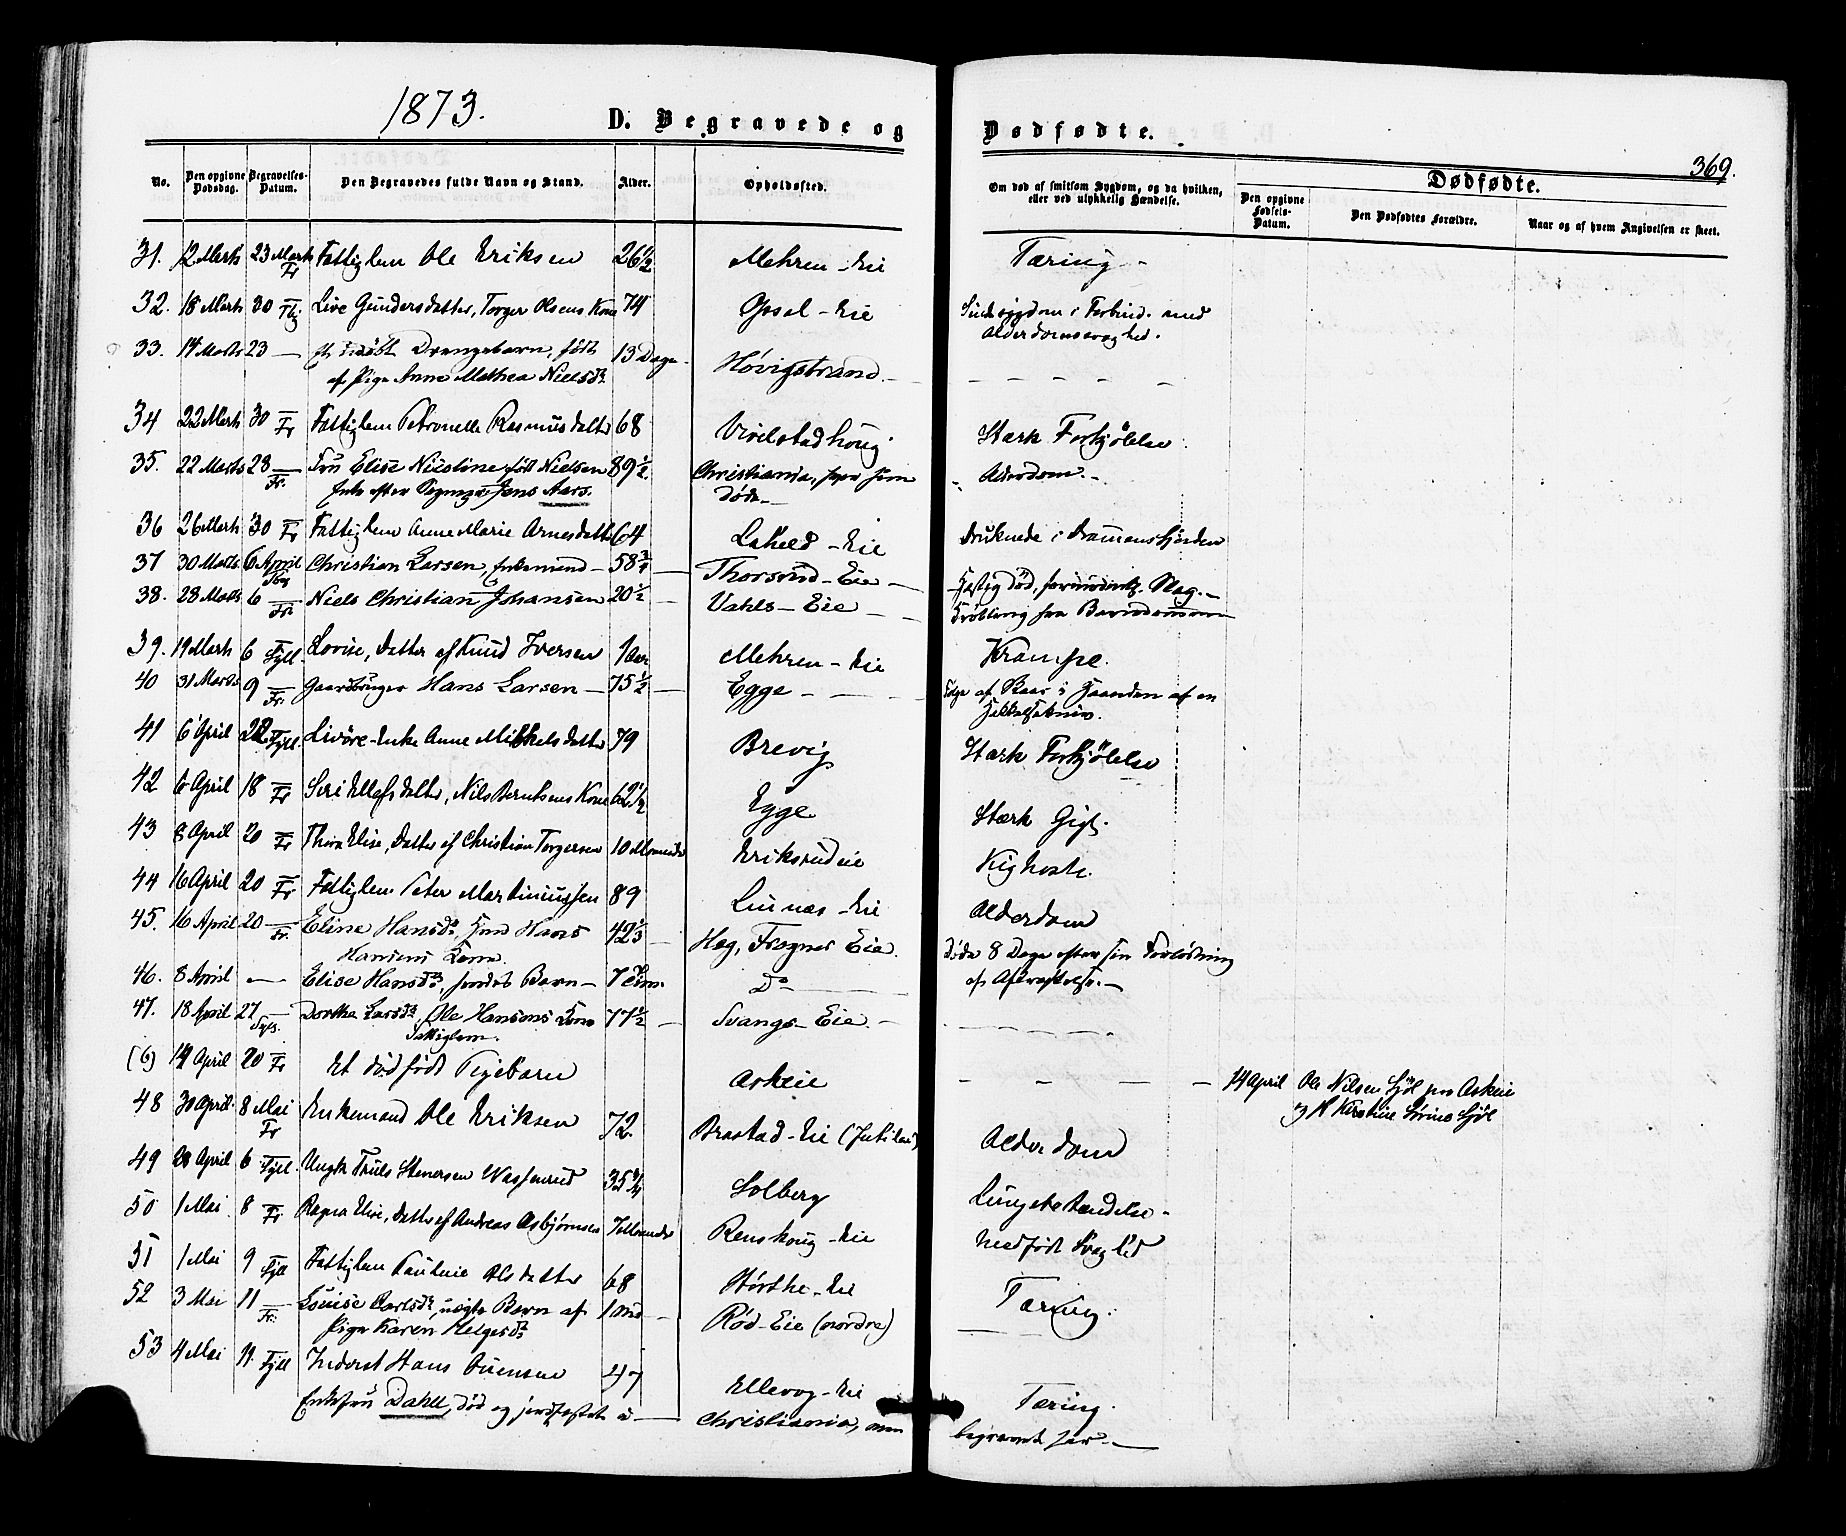 1873.
D. Begravede og Dødfødte.
369.
No.
Den opgivne Dødsdag.
Begravelses-Datum.
Den Begravedes fulde Navn og Stand.
Alder.
Opholdssted.
Om død af smitsom Sygdom, og da hvilken, eller ved ulykkelig Hændelse.
Dødfødte.
Den opgivne Fødsels-Datum.
Den Dødfødtes Forældre.
Naar og af hvem Angivelsen er skeet.
31. 12 Marts 23 Marts Fr Fattiglem Ole Eriksen 26½ Mehren-Eie Tæring -
32. 18 Marts 30 Live Gundersdatter, Torger Olsens Kone 74 Opsal-Eie i Forbind. med
Alderdomssvaghed.
33. 14 Marts 23 — Et Drengebarn, født 13 Dage Høvigstrand - — — — — —
af Pige Anne Mathea Nielsdr
34 22 Marts 30 Fr Fattiglem Petronelle Rasmusdatter 68 Stærk Forkjølelse
35. 22 Marts 28 Fr. Fru Elise Nicoline født Nielsen 89½ Christiania, hvor hun Alderdom. -
Enke efter Jens Aars. døde
36 26 Marts 30 Fr Fattiglem Anne Marie Arnesdatter 64 Laheld-Eie Druknede i Dramensfjorden
37 30 Marts 6 April Christian Larsen, Enkemand 58¾ Thorsrud-Eie - død, formodentl. Slag.
38. 28 Marts 6 Fr. Niels Christian Johansen 20½ Vahls-Eie fra Barndommen
39. 19 Marts 6 Fjell. Lovise, Datter af Knud Iversen 1 Aar Mehren-Eie Krampe.
40 31 Marts 9 Fr. Gaardbruger Hans Larsen 75½ Egge - Følge af Saar i Haanden af en
41 6 April 22 Fjell. Anne Mikkelsdatter 79 Brevig Stærk Forkjølelse
42 6 April 18 Fr Siri Ellefsdatter, Nils Berntsens Kone 62½ Egge Stærk Gigt.
43 8 April 20 Fr Thora Elise, Datter af Christian Torgersen 10 Maaneder Eriksrudeie Kighoste.
44 16 April 20 Fr Fattiglem Peter Martiniussen 89 Linnæs-Eie Alderdom
45. 16 April 20 Fr. Eline Hansdr, Hmd Hans 42⅓ Hæg, Frognes Eie. Døde 8 Dage efter sin Forløsning
Hansens Kone. af Afkræftelse. -
46. 8 April — Elise Hansdr, Barn 7 Do
47. 18 April 27 Dorthe Larsdr, Ole Hansens Kone 77½ Svangs-Eie -
Fattiglem.
(6) 14 April 20 Fr Et dødfødt Pigebarn Askeie — — — — 14 April Ole Nilsen Fjøl paa Askeie
og H Kirstine Fjøl
48 30 April 8 Mai Fr Enkemand Ole Eriksen 72. Brastad-Eie Alderdom
49 28 April 6 Fjell. Ungk Truls Stenersen 35¾ Solberg Lungebetændelse -
50 1 Mai 8 Fr Ragna Elise, Datter af Andreas Asbjørnsen 7 Maaneder Renskoug-Eie Medfødt Svaghed
51 1 Mai 9 Fjell Fattiglem Pauline Olsdatter 68 Størthe-Eie Tæring.
52 3 Mai 11 Fr. Louise Carlsdr, uægte Barn af 1 Rød-Eie (nordre)
Pige Karen Helgesdr
53 4 Mai 11. Fjell Inderst Hans 47 Ellevog-Eie Tæring.
Enkefru Dahll, død og jordfæstet i Christiania, men begravet her. —